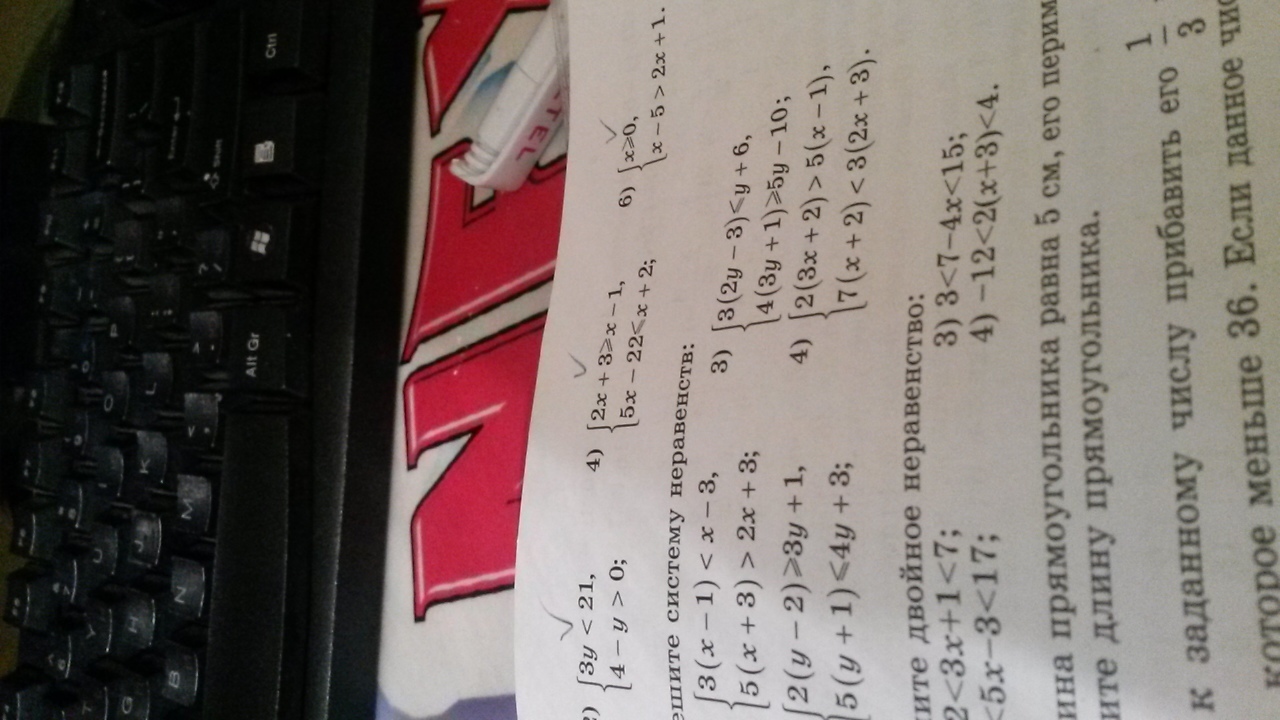 2) {3y < 21,
4 − y > 0;
4) {2x + 3 ⩾ x − 1,
5x − 22 ⩽ x + 2;
6) {x ⩾ 0,
x − 5 > 2x + 1.
ешите систему неравенств:
{3(x − 1) < x − 3,
5(x + 3) > 2x + 3;
{2(y − 2) ⩾ 3y + 1,
5(y + 1) ⩽ 4y + 3;
3) {3(2y − 3) ⩽ y + 6,
4(3y + 1) ⩾ 5y − 10;
4) {2(3x + 2) > 5(x − 1),
7(x + 2) < 3(2x + 3).
ите двойное неравенство:
2<3x+1<7;
<5x−3<17;
3) 3<7−4x<15;
4) −12<2(x+3)<4.
ина прямоугольника равна 5 см, его перим
ите длину прямоугольника.
к заданному числу прибавить его 1/3
которое меньше 36. Если данное чис
Ctrl
Alt Gr
Shift
P
O
L
K
M
U
J
N
Y
H
B
T
G
TEL